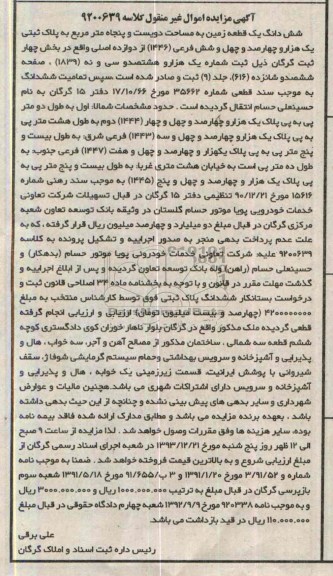 آگهی مزایده اموال غیر منقول کلاسه ۹۲۰۰۶۳۹
شش دانگ یک قطعه زمین به مساحت دویست و پنجاه متر مربع به پلاک ثبتی
یک هزار و چهارصد و چهل و شش فرعی (۱۴۴۶) از دوازده اصلی واقع در بخش چهار
ثبت گرگان ذیل ثبت شماره یک هزار و هشتصدو سی و نه (۱۸۳۹) ، صفحه
ششصدو شانزده (۶۱۶)، جلد (۹) ثبت و صادر شده است .سپس تمامیت ششدانگ
به موجب سند قطعی شماره ۳۵۶۶۲ مورخ ۱۷/۱۰/۶۶ دفتر ۱۵ گرگان به نام
حسینعلی حسام انتقال گردیده است . حدود مشخصات شمالا: اول به طول دو متر
پی به پی پلاک یک هزار و چهارصد و چهل و چهار (۱۴۴۴) دوم به طول هشت متر پی
به پی پلاک یک هزارو چهارصد و چهل و سه (۱۴۴۳) فرعی شرق: به طول بیست و
پنج متر پی به پی پلاک یکهزار و چهارصد و چهل و هفت (۱۴۴۷) فرعی جنوب: به
طول ده متر پی است به خیابان هشت متری غربا: به طول بیست و پنج متر پی به
پی پلاک یک هزار و چهارصد و چهل و پنج (۱۴۴۵) به موجب سند رهنی شماره
۱۵۶۱۶ مورخ ۹۰/۱۲/۲۱ تنظیمی دفتر ۱۵ گرگان در قبال تسهیلات شرکت تعاونی
خدمات خودرویی پویا موتور حسام گلستان در وثیقه بانک توسعه تعاون شعبه
مرکزی گرگان در قبال مبلغ دو میلیارد و چهارصد میلیون ریال قرار گرفته ، که به
علت عدم پرداخت بدهی منجر به صدور اجراییه و تشکیل پرونده به کلاسه
۹۲۰۰۶۳۹ علیه: شرکت تعاونی خدمات خودرونی پویا موتور حسام (بدهکار) و
حسینعلی حسام (راهن) وله بانک توسعه تعاون گردیده و پس از ابلاغ اجراییه و
گذشت مهلت مقرر در قانون و با توجه به بخشنامه ماده ۳۴ اصلاحی قانون ثبت و
درخواست بستانکار ششدانگ پلاک ثبتی فوق توسط کارشناس منتخب به مبلغ
۴۲۰۰۰۰۰۰۰۰ (چهارصد و بیست میلیون تومان) ارزیابی و ارزیابی انجام گرفته
قطعی گردیده ملک مذکور واقع در گرگان بلوار ناهار خوران کوی دادگستری کوچه
ششم قطعه سه شمالی . ساختمان مذکور از مصالح آهن و آجر، سه خواب ، هال و
پذیرایی و آشپزخانه و سرویس بهداشتی وحمام سیستم گرمایشی شوفاژ، سقف
شیروانی با پوشش ایرانیت قسمت زیرزمینی یک خوابه ، هال و پذیرایی و
آشپزخانه و سرویس دارای اشتراکات شهری می باشد.هچنین مالیات و عوارض
شهرداری و سایر بدهی های پیش بینی نشده و چنانچه از این حیث بدهی داشته
باشد . بعهده برنده مزایده می باشد و مطابق مدارک ارائه شده فاقد بیمه نامه
بوده. سایر هزینه ها وفق مقررات وصول خواهد شد . لذا مزایده از ساعت ۹ صبح
الی ۱۲ ظهر روز پنج شنبه مورخ ۱۳۹۳/۱۲/۲۱ در شعبه اجرای اسناد رسمی گرگان از
مبلغ ارزیابی شروع و به بالاترین قیمت فروخته خواهد شد . ضمنا به موجب نامه
شماره ۳/۹۱/۵۲ مورخ ۱۳۹۱/۱/۲۰ و ۳ ب/۹۱/۶۵۵ مورخ ۱۳۹۱/۵/۱۸ شعبه سوم
بازپرسی گرگان در قبال مبلغ به ترتیب ۱۰۰۰.۰۰۰.۰۰۰ ریال و ۳۰۰۰.۰۰۰.۰۰۰ ریال
و به موجب نامه ۹۲۰۳۳۸ مورخ ۱۳۹۲/۹/۹ شعبه چهارم دادگاه حقوقی در قبال مبلغ
۱۱۰.۰۰۰.۰۰۰ ریال در قید بازداشت می باشد.
علی برقی
رئیس داره ثبت اسناد و املاک گرگان